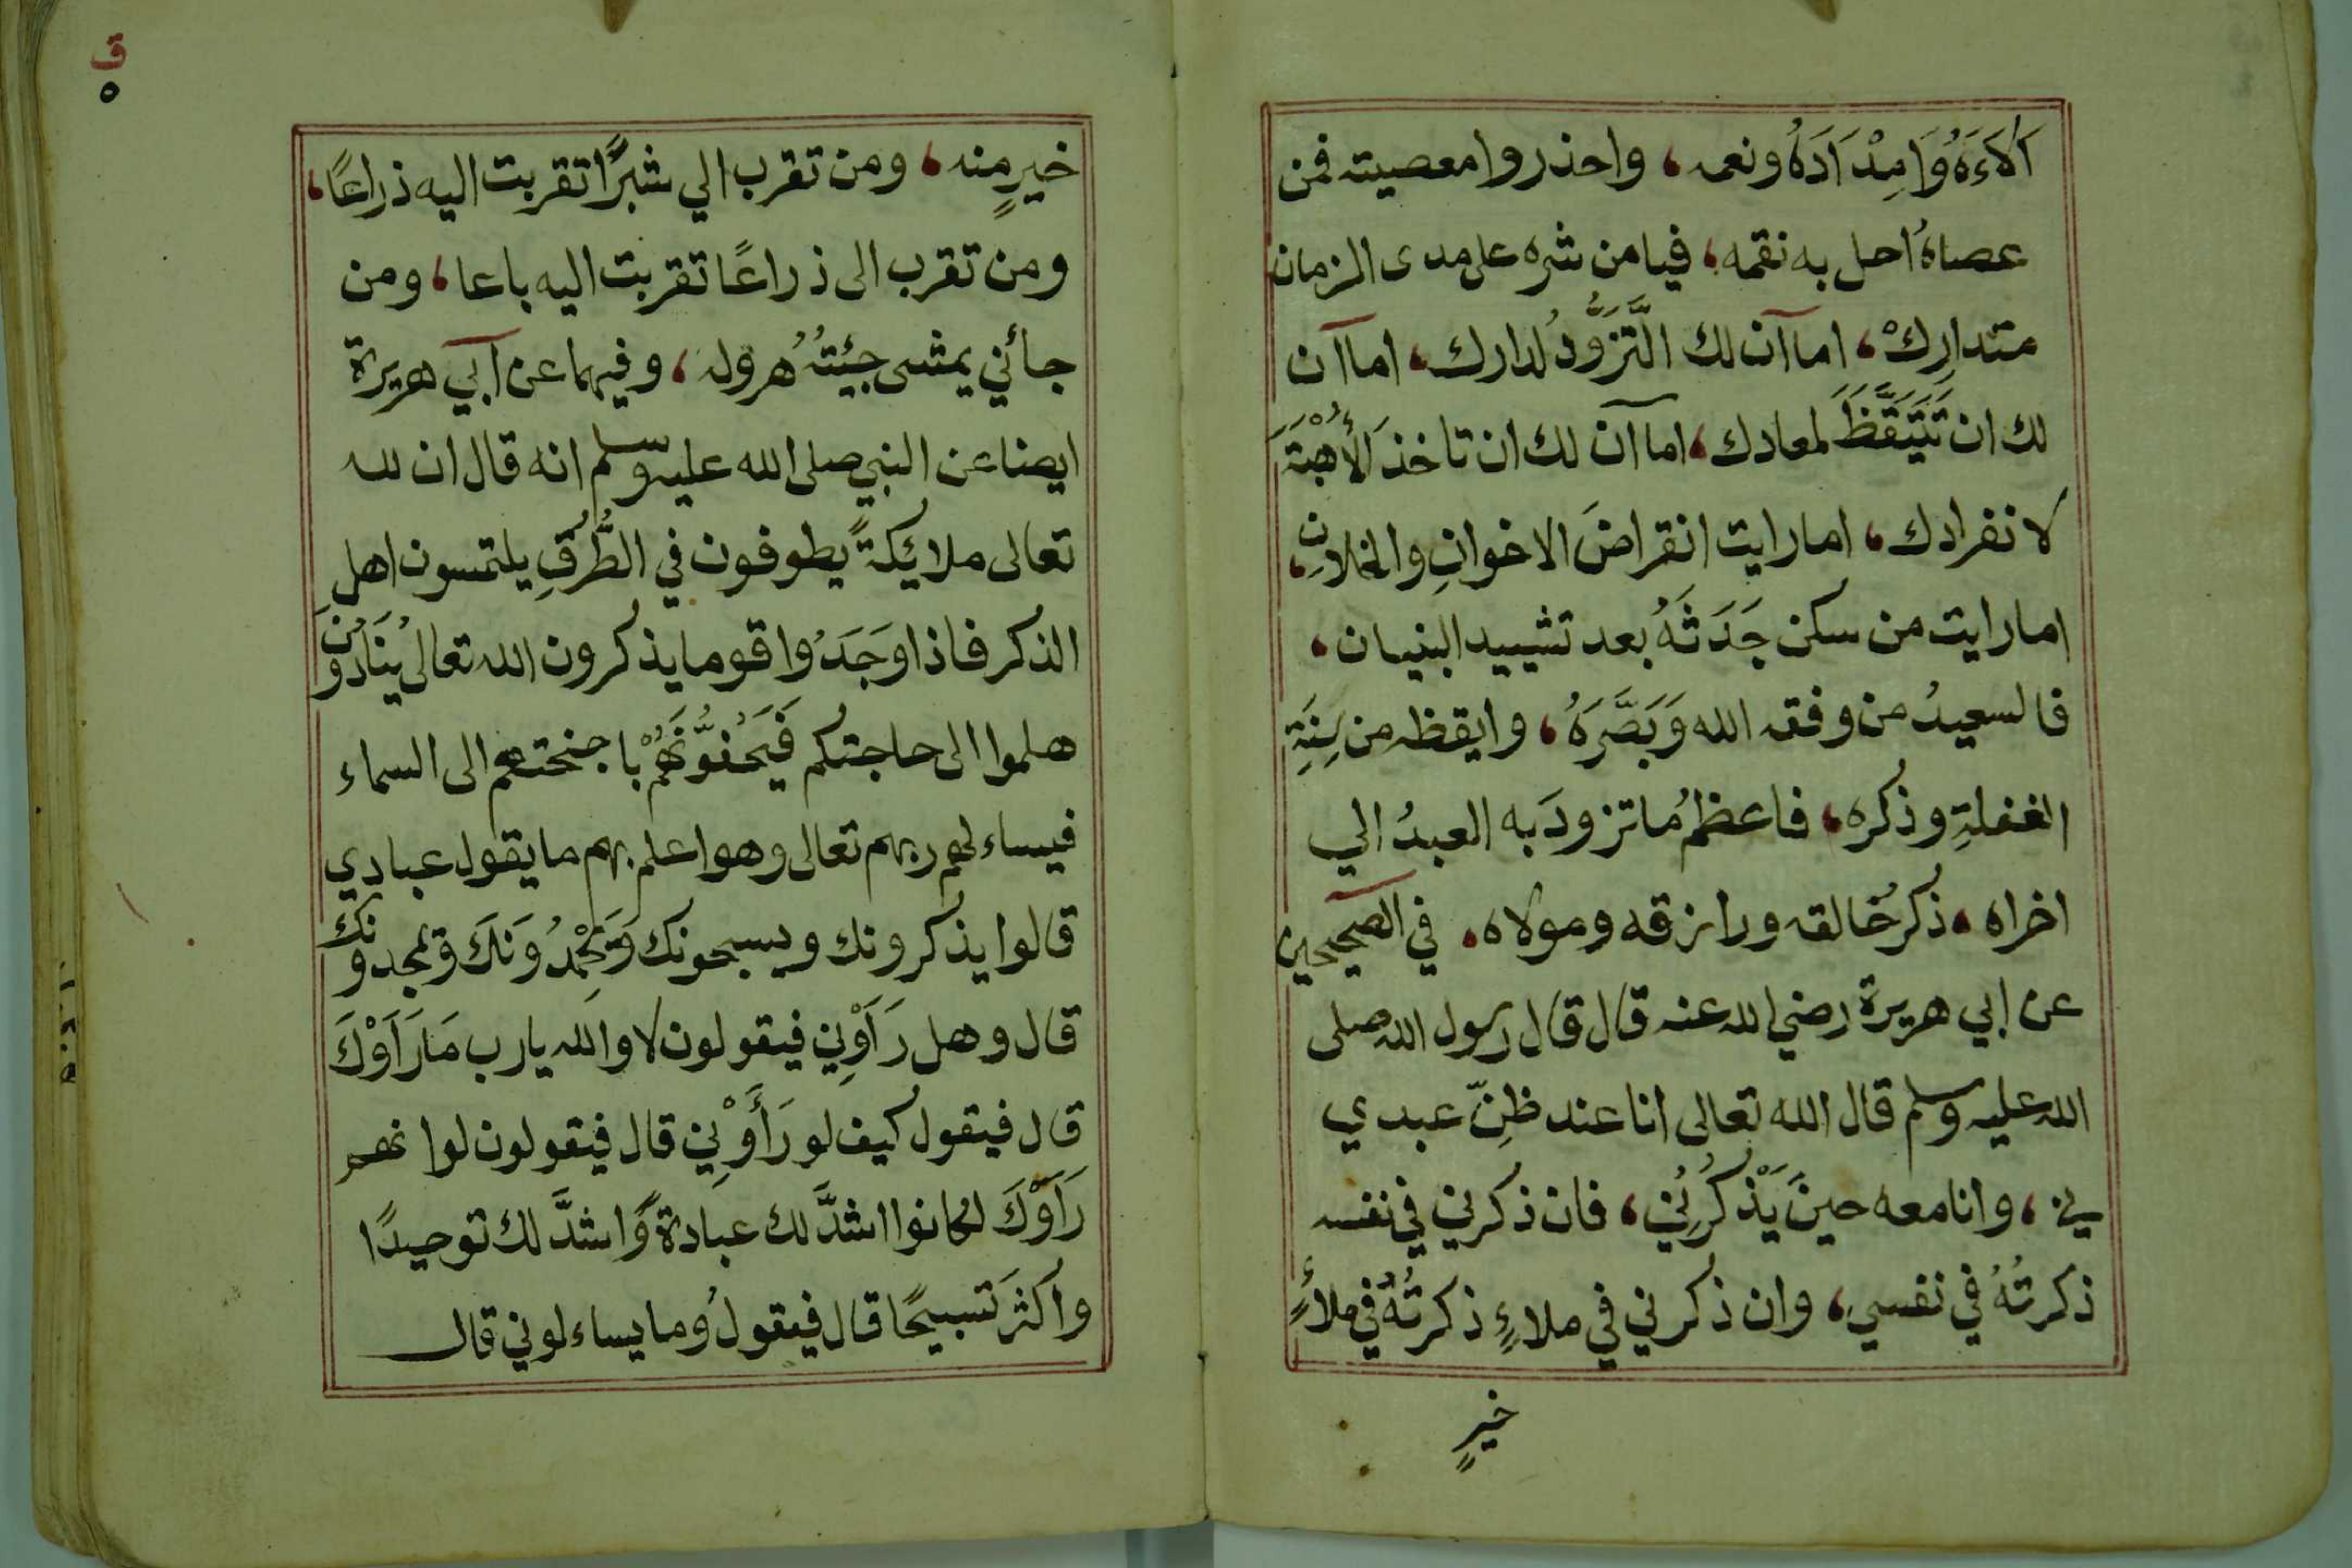 اَلاءَهُ وَامِدْادَهُ ونعمه، واحذروا معصيته فمن
عصاهُ احل به نقمه، فيا من شره على مدى الزمان
متدارِكْ، اما آن لك الَّتزَوُّدُ لدارك، اما آن
لك ان تَتَيَقَّظَ لمعادك، اما آن لك ان تاخذ الأُهْبَةَ
لانفرادك، اما رايت انقراضَ الاخوانِ والخلانِ،
اما رايت من سكن جَدَثَهُ بعد تشييد البنيان،
فالسعيدُ من وفقه الله وَبَصَّرَهُ، وايقظه من سِنَةِ
الغفلةِ وذكره، فاعظمُ ما تزودَ به العبدُ الي
اخراه، ذكرُ خالقه ورازقه ومولاه، في الصحيحين
عن ابي هريرة رضي الله عنه قال قال رسول الله صلى
الله عليه وسلم قال الله تعالى انا عند ظنِّ عبدي
بي، وانا معه حينَ يَذْكُرُنِي، فان ذكرني في نفسه
ذكرتُهُ في نفسي، وان ذكرني في ملاءٍ ذكرتُهُ في ملأٍ
خيرٍ
ق
٥
خيرٍ منه، ومن تقرب الي شبرًا تقربت اليه ذراعًا،
ومن تقرب الى ذراعًا تقربت اليه باعا، ومن
جأني يمشى جيئتُهُ هرولة، وفيهما عن أبي هريرة
ايضا عن النبي صلى الله عليه وسلم انه قال ان لله
تعالى ملايكةً يطوفون في الطُّرُقِ يلتمسون اهل
الذكر فاذا وَجَدُوا قوما يذكرون الله تعالى يُنَادُونَ
هلموا الى حاجتكم فَيَحُفُّونَهُمْ باجنحتهم الى السماء
فيساءلهم ربهم تعالى وهو اعلم بهم ما يقول عبادي
قالوا يذكرونك ويسبحونك وَيَحْمَدُونَكَ ويمجدونك
قال وهل رَاَوْنِي فيقولون لا والله يارب مَا رَاَوْكَ
قال فيقول كيف لو رَأَوْنِي قال فيقولون لو انهم
رَاَوْكَ لكانوا اشدَّ لك عبادةً وَاشدَّ لك توحيدًا
واكثرَ تسبيحًا قال فيقولُ وما يساءلوني قال